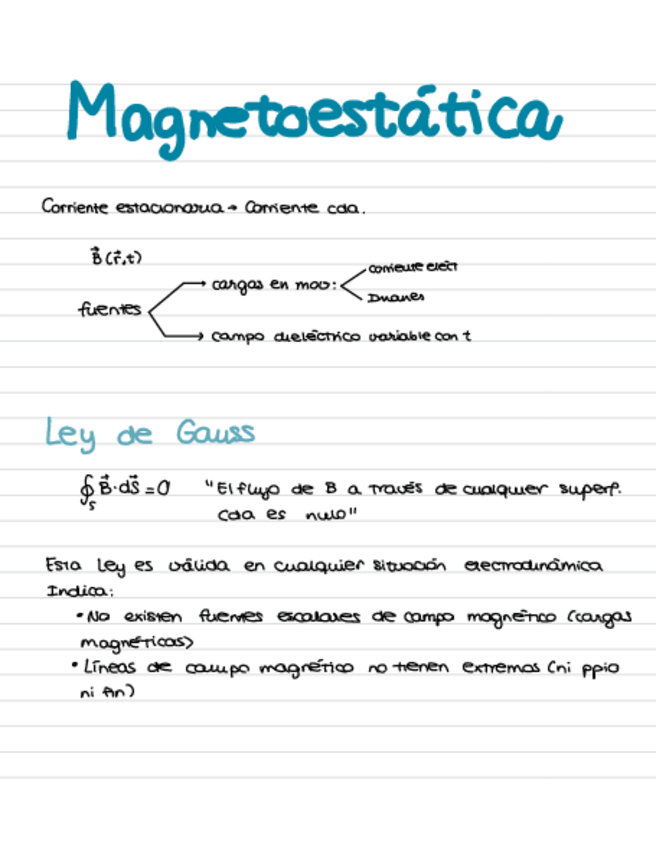 Magnetoestática
Corriente estacionaria → Corriente cda.
B⃗(r⃗,t)
fuentes
→ cargas en mov:
corriente eléct
Imanes
→ campo dieléctrico variable con t
Ley de Gauss
∮ₛ B⃗·dS⃗ = 0 "El flujo de B a través de cualquier superf.
cda es nulo"
Esta Ley es válida en cualquier situación electrodinámica
Indica:
• No existen fuentes escalares de campo magnético (cargas
magnéticas)
• Líneas de campo magnético no tienen extremos (ni ppio
ni fin)